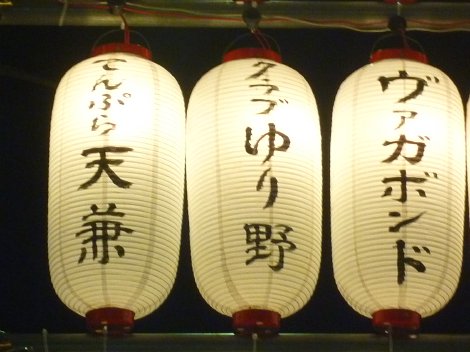 てんぷら天兼
クラブゆり野
ヴァガボンド